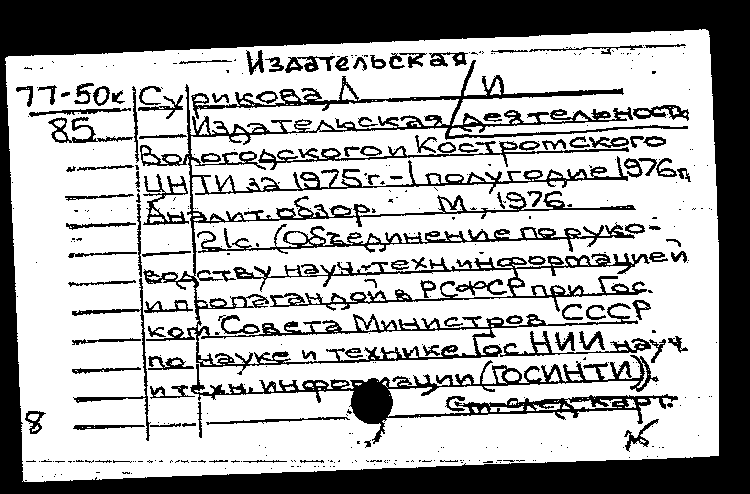 Издательская
77-50к Сурикова, Л И
85 Издательская деятельность
Вологодского и Костромского
ЦНТИ за 1975г.-I полугодие 1976г.
Аналит. обзор. М., 1976.
21с. (Объединение по руко-
водству науч.-техн. информацией
и пропагандой в РСФСР при Гос.
ком. Совета Министров СССР
по науке и технике. Гос. НИИ науч.
и техн. информации (ГОСИНТИ)).
См. след. карт.
8